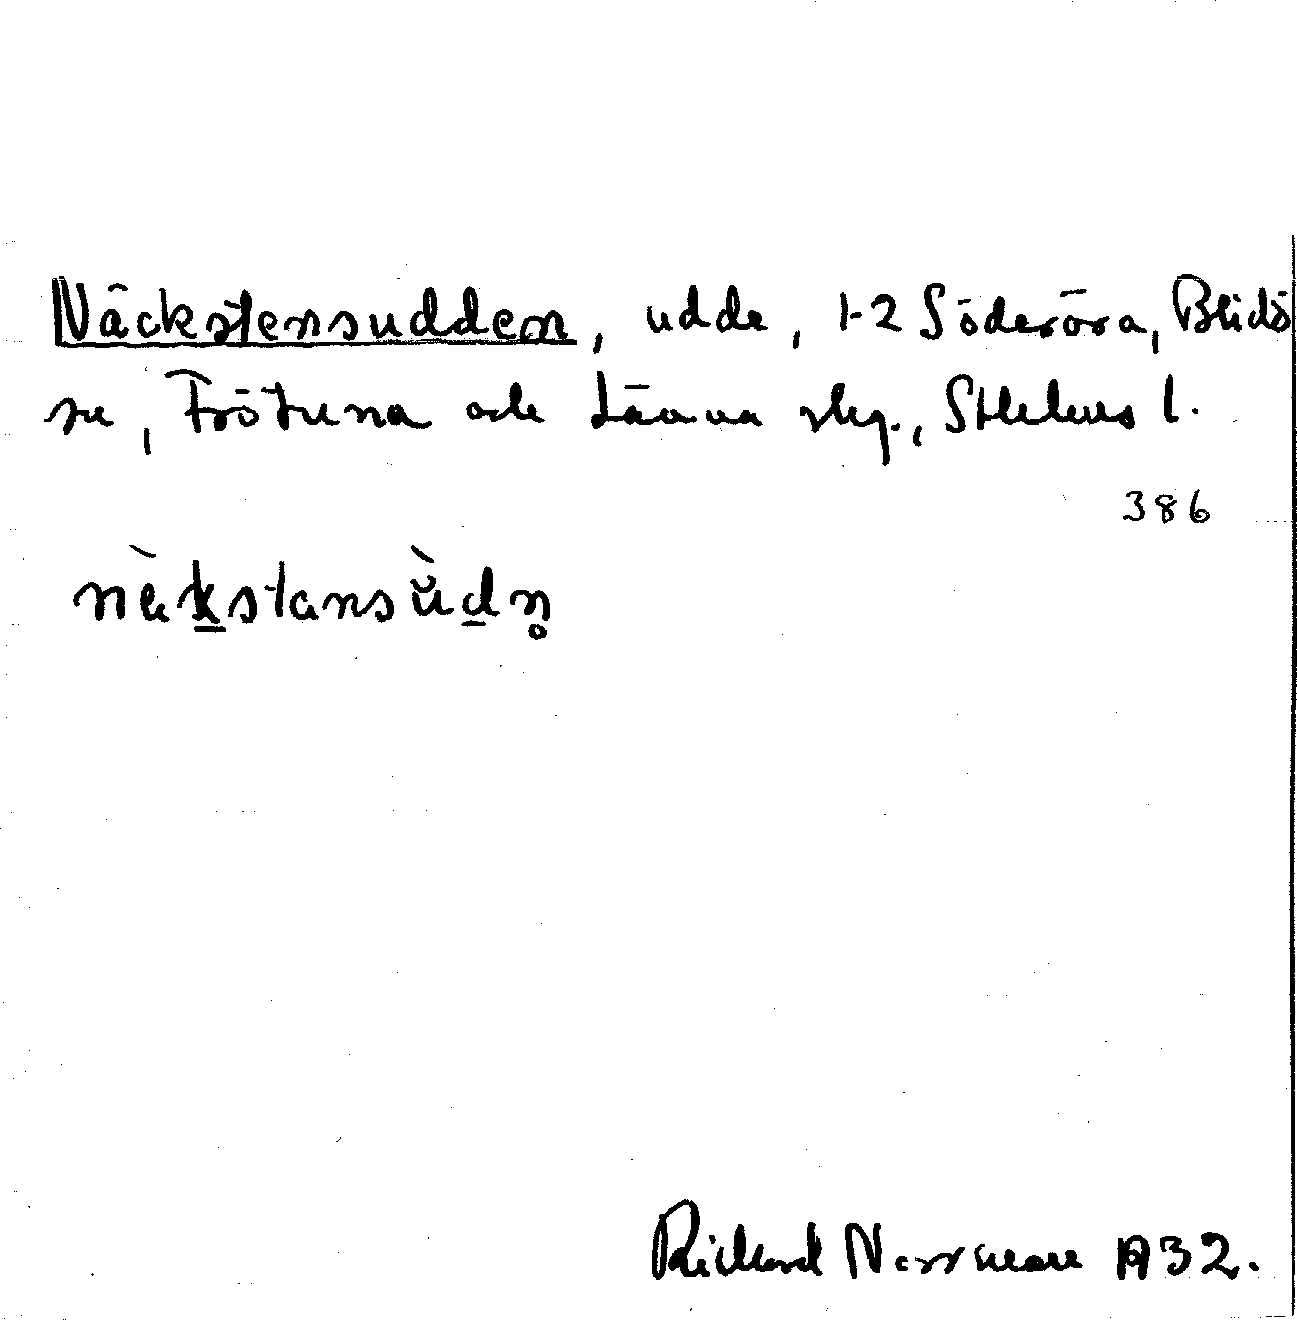 Näckstensudden, udde, 1-2 Söderöra, Blidö
sn, Frötuna och Länna skg., Sthlms l.
386
nä̀k̲stansù̆d̲n̥
Richard Norrman 1932.